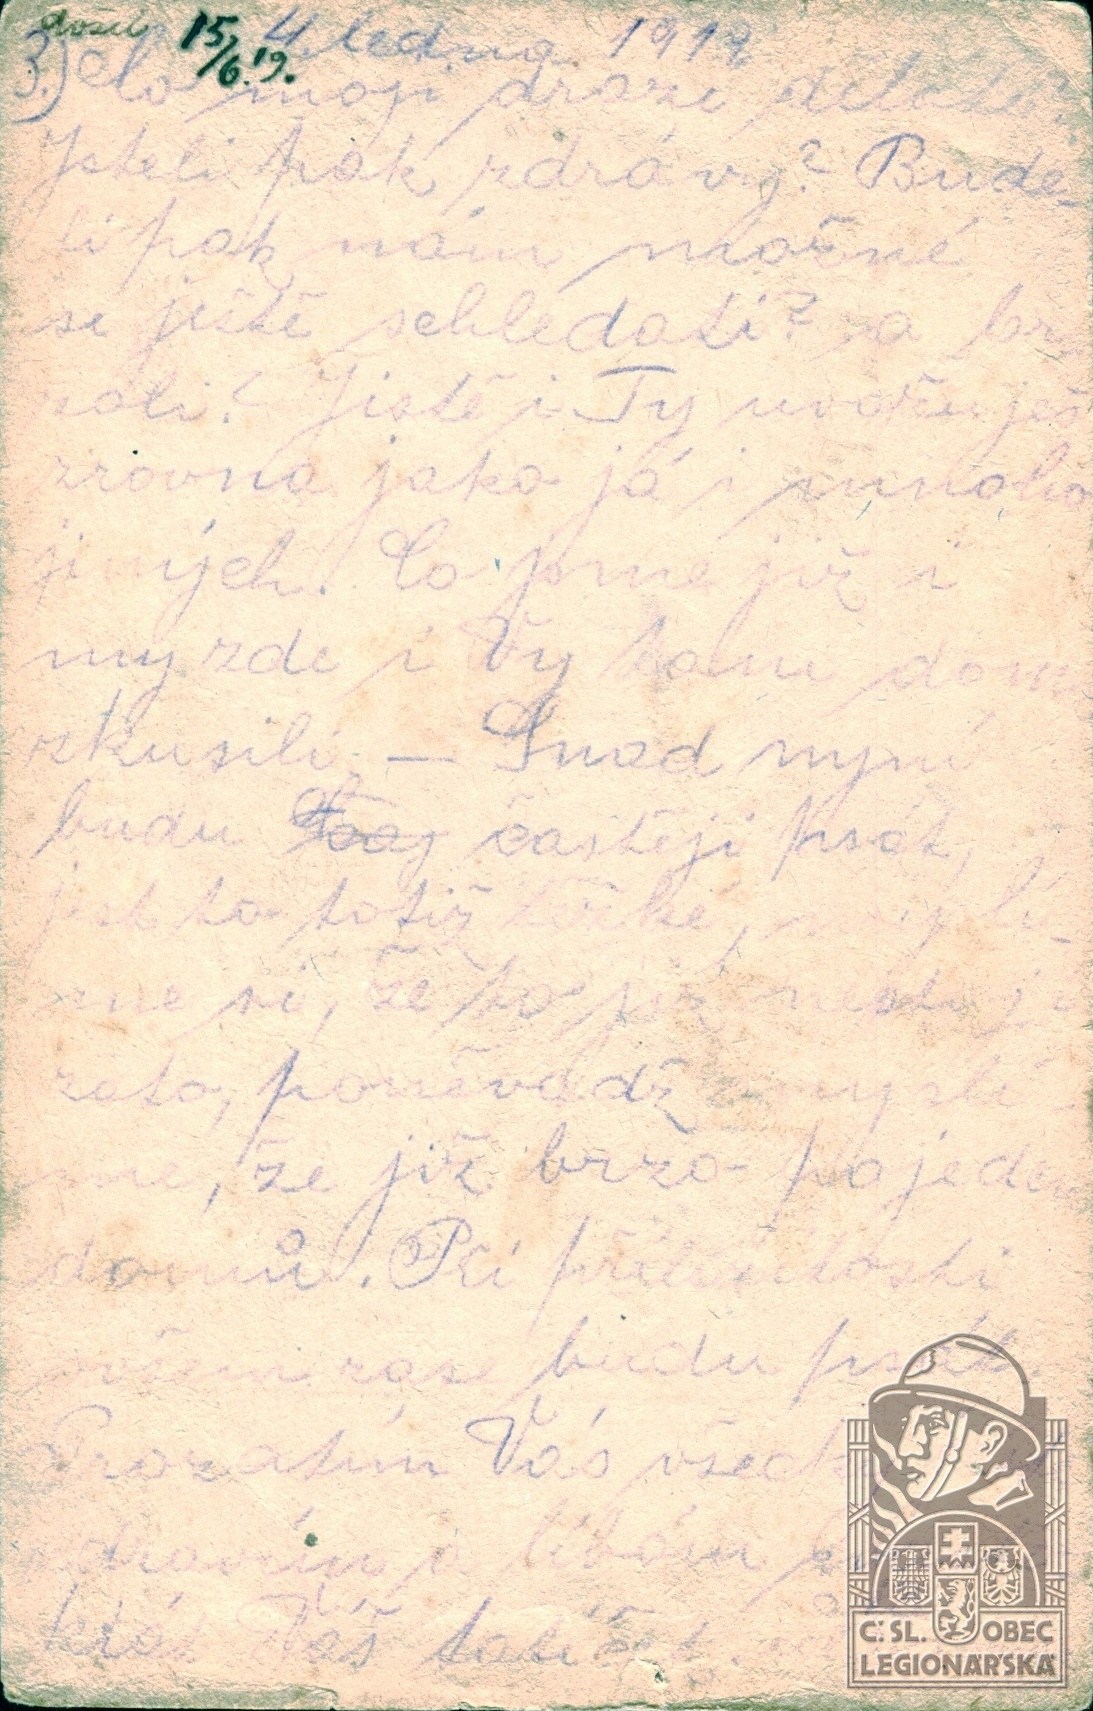 došlo 15/6.19.
4 ledna 1919
3.) Co moji drazí děláte?
Jsteli pak zdrávy? Bude-
li pak nám možné
se ještě schledati? a br
zoli? Jistě i Ty uvažuješ
zrovna jako já i mnoho
jiných. Co jsme již i
my zde i Vy tam doma
zkusili. — Snad nyní
budu častěji psát,
jest to totiž těžké, myslí-
me si, že to již nestojí
zato, poněvadž myslí-
me, že již brzo pojedem
domů. Při příležitosti
ovšem zase budu psát.
Prozatím Vás všech
zdravím a líbám
krát Váš tatíček
Č. SL. OBEC
LEGIONÁŘSKÁ